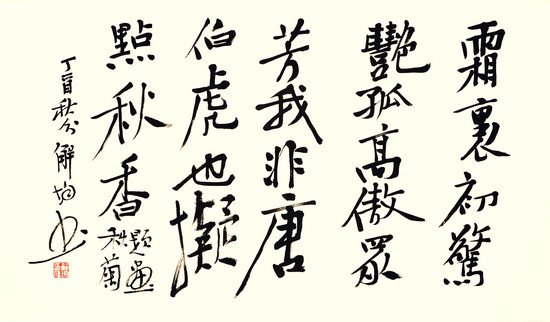 霜裏初驚
艷孤高傲眾
芳我非唐
伯虎也擬
點秋香
題畫
秋菊
丁酉秋分解均書